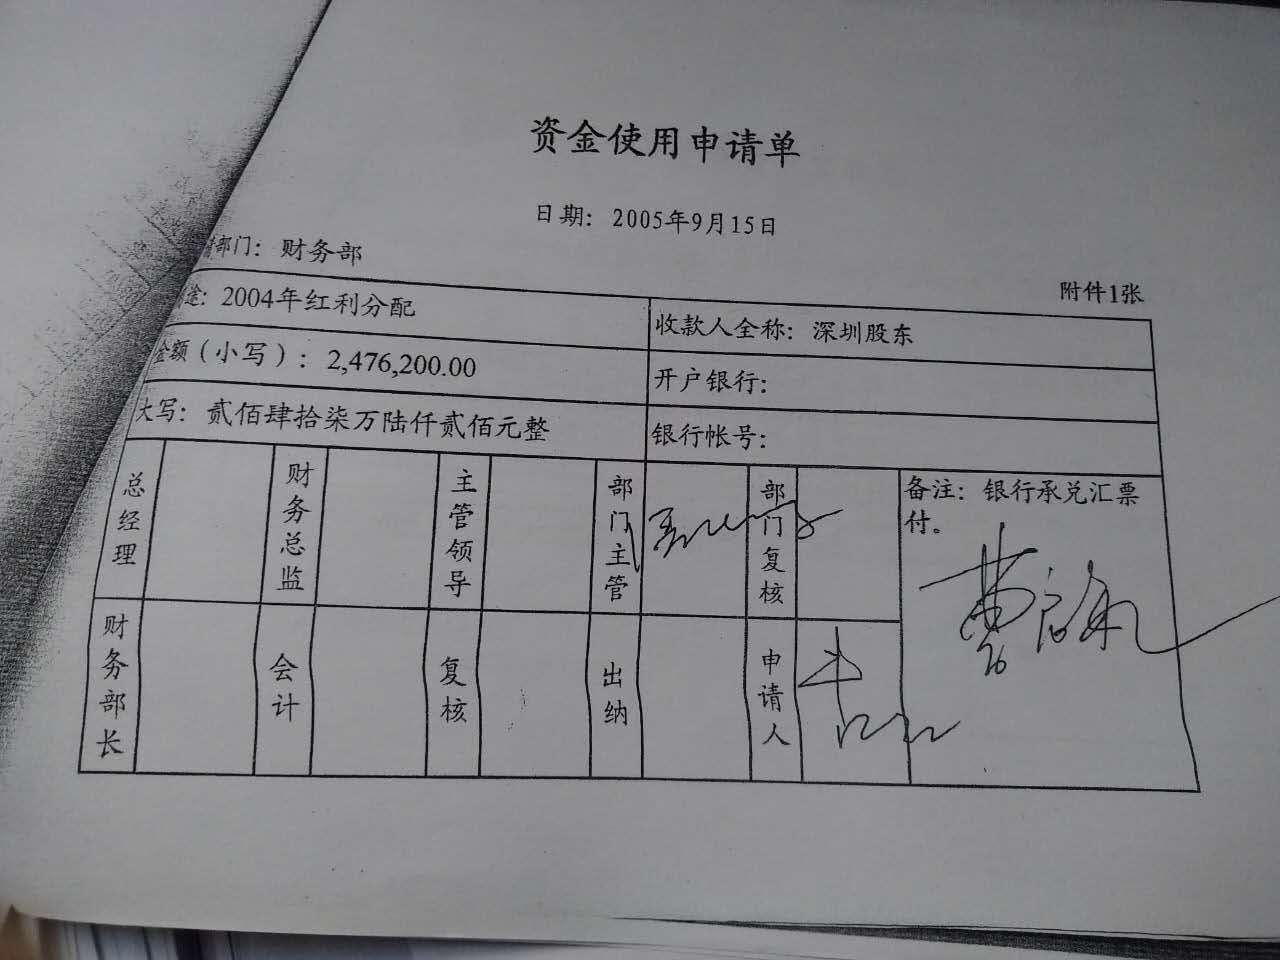 资金使用申请单
日期：2005年9月15日
部门：财务部
附件1张
途：2004年红利分配
收款人全称：深圳股东
金额（小写）：2,476,200.00
开户银行：
大写：贰佰肆拾柒万陆仟贰佰元整
银行帐号：
总经理
财务总监
主管领导
部门主管
部门复核
备注：银行承兑汇票
付。
财务部长
会计
复核
出纳
申请人